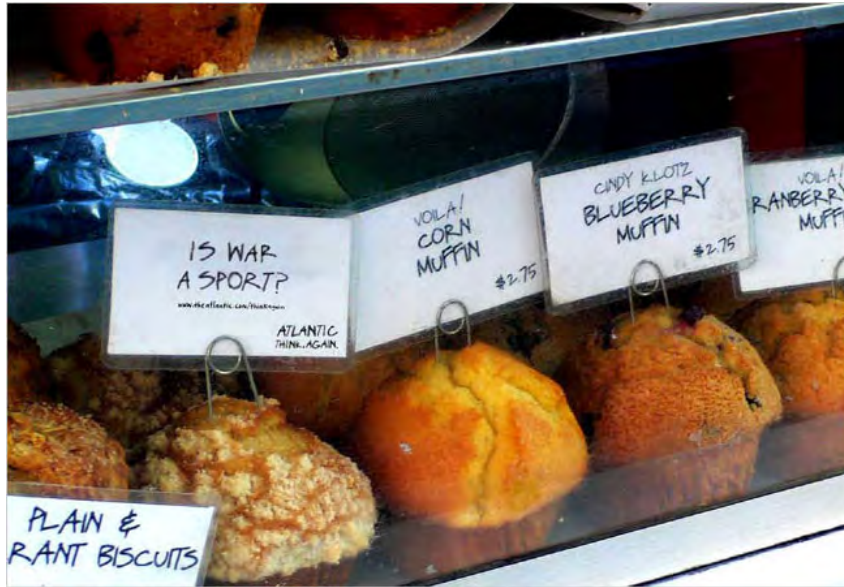 IS WAR
A SPORT?
www.theatlantic.com/thinkagain
ATLANTIC
THINK.AGAIN.
VOILA!
CORN
MUFFIN
$2.75
CINDY KLOTZ
BLUEBERRY
MUFFIN
$2.75
VOILA!
RANBERRY
MUFF
PLAIN &
RANT BISCUITS